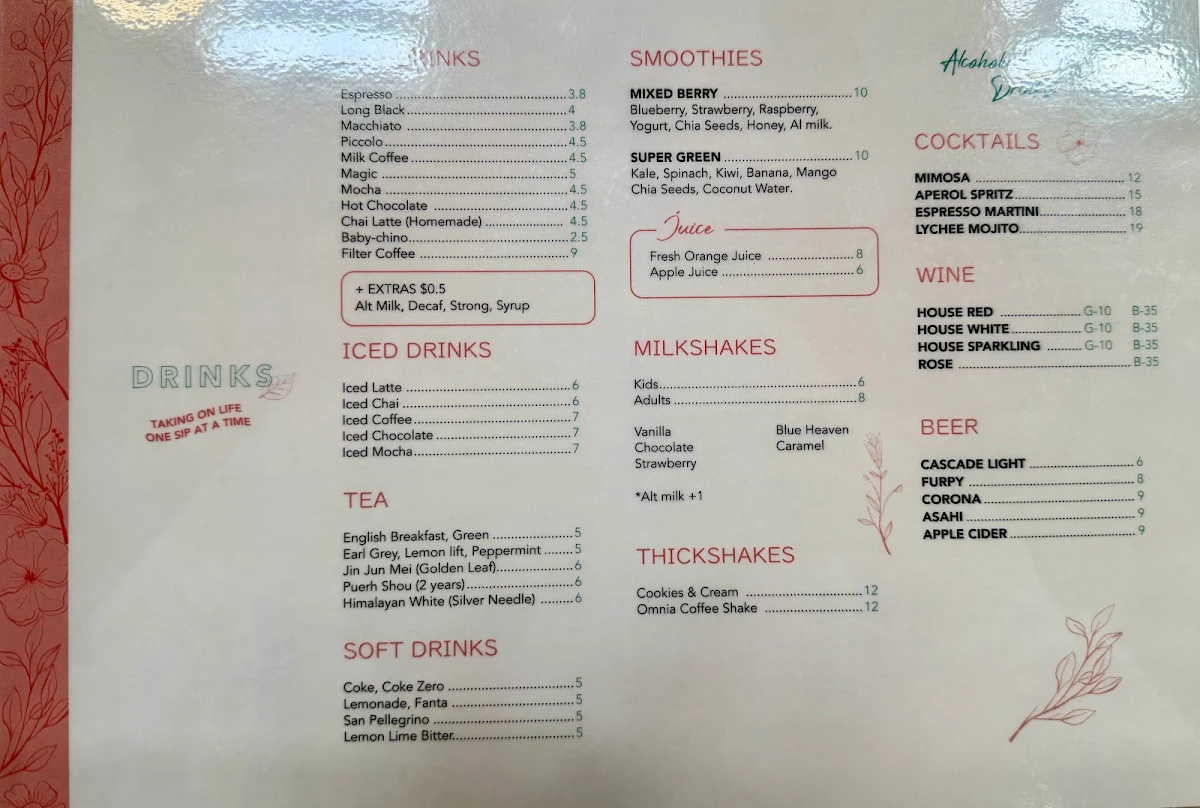 DRINKS
TAKING ON LIFE
ONE SIP AT A TIME
DRINKS
Espresso 3.8
Long Black 4
Macchiato 3.8
Piccolo 4.5
Milk Coffee 4.5
Magic 5
Mocha 4.5
Hot Chocolate 4.5
Chai Latte (Homemade) 4.5
Baby-chino 2.5
Filter Coffee 9
+ EXTRAS $0.5
Alt Milk, Decaf, Strong, Syrup
ICED DRINKS
Iced Latte 6
Iced Chai 6
Iced Coffee 7
Iced Chocolate 7
Iced Mocha 7
TEA
English Breakfast, Green 5
Earl Grey, Lemon lift, Peppermint 5
Jin Jun Mei (Golden Leaf) 6
Puerh Shou (2 years) 6
Himalayan White (Silver Needle) 6
SOFT DRINKS
Coke, Coke Zero 5
Lemonade, Fanta 5
San Pellegrino 5
Lemon Lime Bitter 5
SMOOTHIES
MIXED BERRY 10
Blueberry, Strawberry, Raspberry,
Yogurt, Chia Seeds, Honey, Al milk.
SUPER GREEN 10
Kale, Spinach, Kiwi, Banana, Mango
Chia Seeds, Coconut Water.
Juice
Fresh Orange Juice 8
Apple Juice 6
MILKSHAKES
Kids 6
Adults 8
Vanilla Blue Heaven
Chocolate Caramel
Strawberry
*Alt milk +1
THICKSHAKES
Cookies & Cream 12
Omnia Coffee Shake 12
COCKTAILS
MIMOSA 12
APEROL SPRITZ 15
ESPRESSO MARTINI 18
LYCHEE MOJITO 19
WINE
HOUSE RED G-10 B-35
HOUSE WHITE G-10 B-35
HOUSE SPARKLING G-10 B-35
ROSE B-35
BEER
CASCADE LIGHT 6
FURPY 8
CORONA 9
ASAHI 9
APPLE CIDER 9